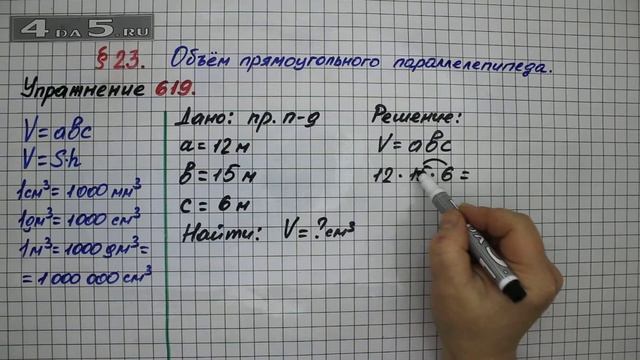 4 ДА 5.RU
§ 23. Объём прямоугольного параллелепипеда.
Упражнение 619.
V = abc
V = S·h
1см³ = 1000 мм³
1дм³ = 1000 см³
1м³ = 1000 дм³ =
= 1 000 000 см³
Дано: пр. п-д
a = 12 м
b = 15 м
c = 6 м
Найти: V = ? см³
Решение:
V = abc
12 · 15 · 6 =